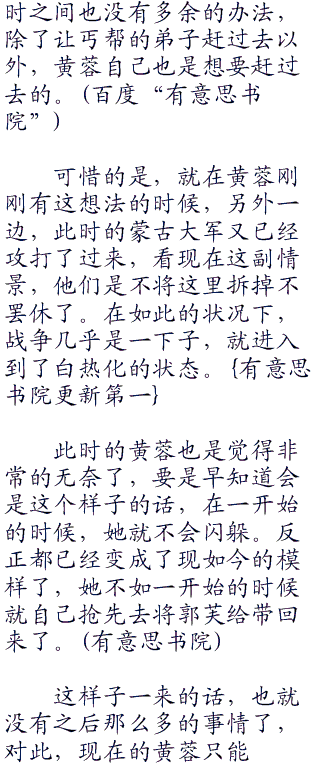 时之间也没有多余的办法，
除了让丐帮的弟子赶过去以
外，黄蓉自己也是想要赶过
去的。(百度“有意思书
院”)
可惜的是，就在黄蓉刚
刚有这想法的时候，另外一
边，此时的蒙古大军又已经
攻打了过来，看现在这副情
景，他们是不将这里拆掉不
罢休了。在如此的状况下，
战争几乎是一下子，就进入
到了白热化的状态。{有意思
书院更新第一}
此时的黄蓉也是觉得非
常的无奈了，要是早知道会
是这个样子的话，在一开始
的时候，她就不会闪躲。反
正都已经变成了现如今的模
样了，她不如一开始的时候
就自己抢先去将郭芙给带回
来了。(有意思书院)
这样子一来的话，也就
没有之后那么多的事情了，
对此，现在的黄蓉只能